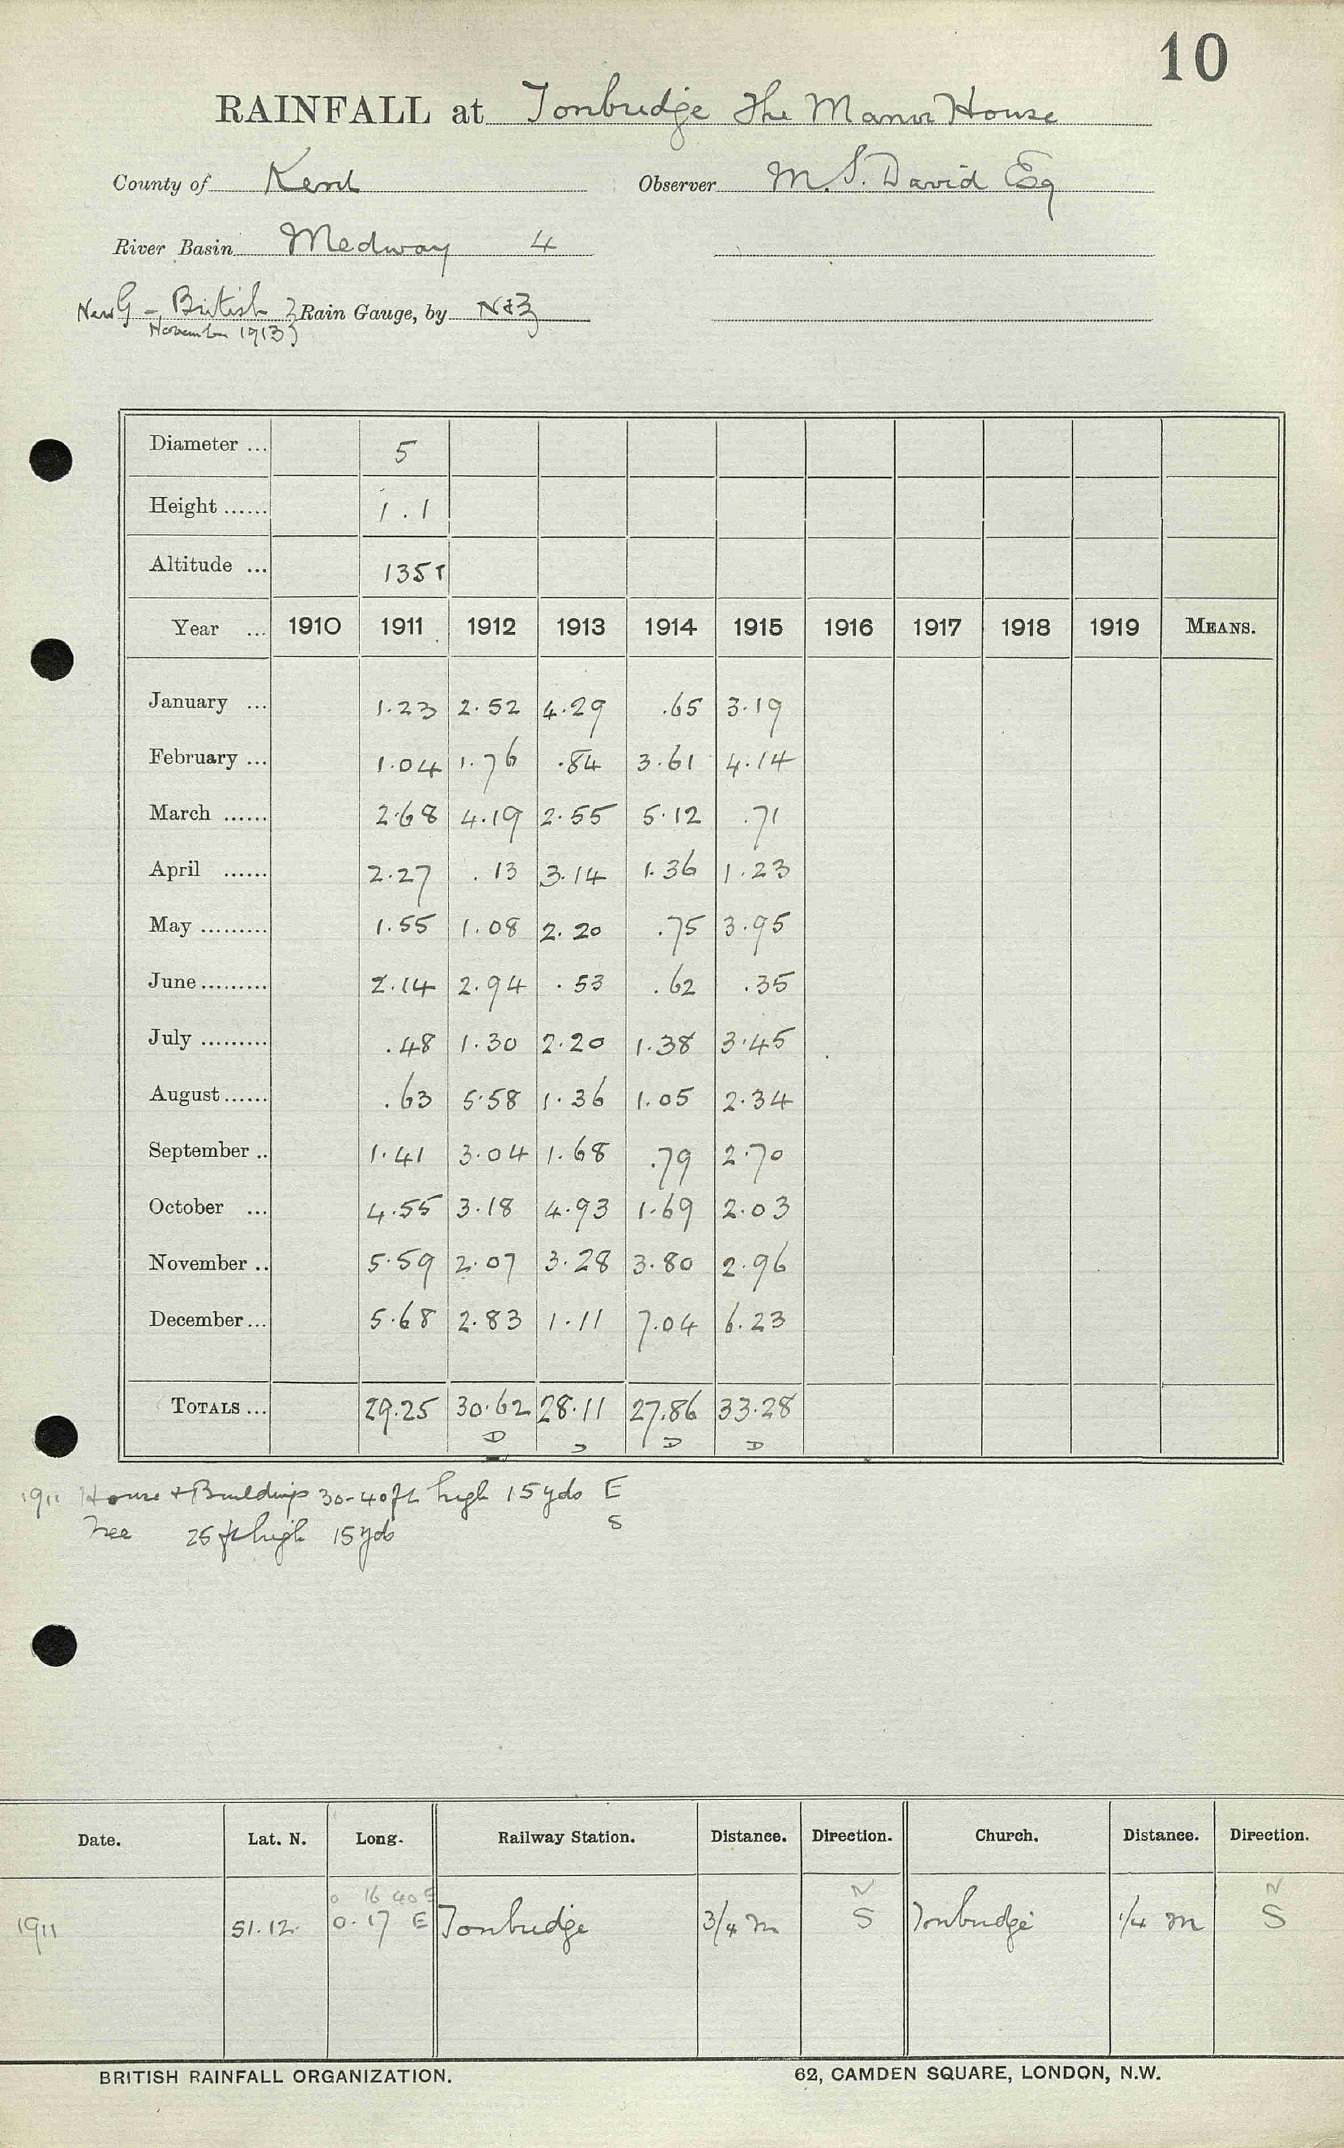 10
RAINFALL at Tonbridge The Manor House
County of Kent Observer M. S. David Esq
River Basin Medway 4
New G - British } Rain Gauge, by N&Z
November 1913 }
Diameter ... 5
Height ...... 1.1
Altitude ... 135T
Year ... 1910 1911 1912 1913 1914 1915 1916 1917 1918 1919 MEANS.
January ... 1.23 2.52 4.29 .65 3.19
February ... 1.04 1.76 .84 3.61 4.14
March ...... 2.68 4.19 2.55 5.12 .71
April ...... 2.27 .13 3.14 1.36 1.23
May ......... 1.55 1.08 2.20 .75 3.95
June ......... 2.14 2.94 .53 .62 .35
July ......... .48 1.30 2.20 1.38 3.45
August ...... .63 5.58 1.36 1.05 2.34
September .. 1.41 3.04 1.68 .79 2.70
October ... 4.55 3.18 4.93 1.69 2.03
November .. 5.59 2.07 3.28 3.80 2.96
December ... 5.68 2.83 1.11 7.04 6.23
TOTALS ... 29.25 30.62 28.11 27.86 33.28
D D D D
1911 House & Buildings 30-40 ft high 15 yds E
Tree 25 ft high 15 yds S
Date. Lat. N. Long. Railway Station. Distance. Direction. Church. Distance. Direction.
0 16 40 E N N
1911 51.12 0.17 E Tonbridge 3/4 m S Tonbridge 1/4 m S
BRITISH RAINFALL ORGANIZATION. 62, CAMDEN SQUARE, LONDON, N.W.